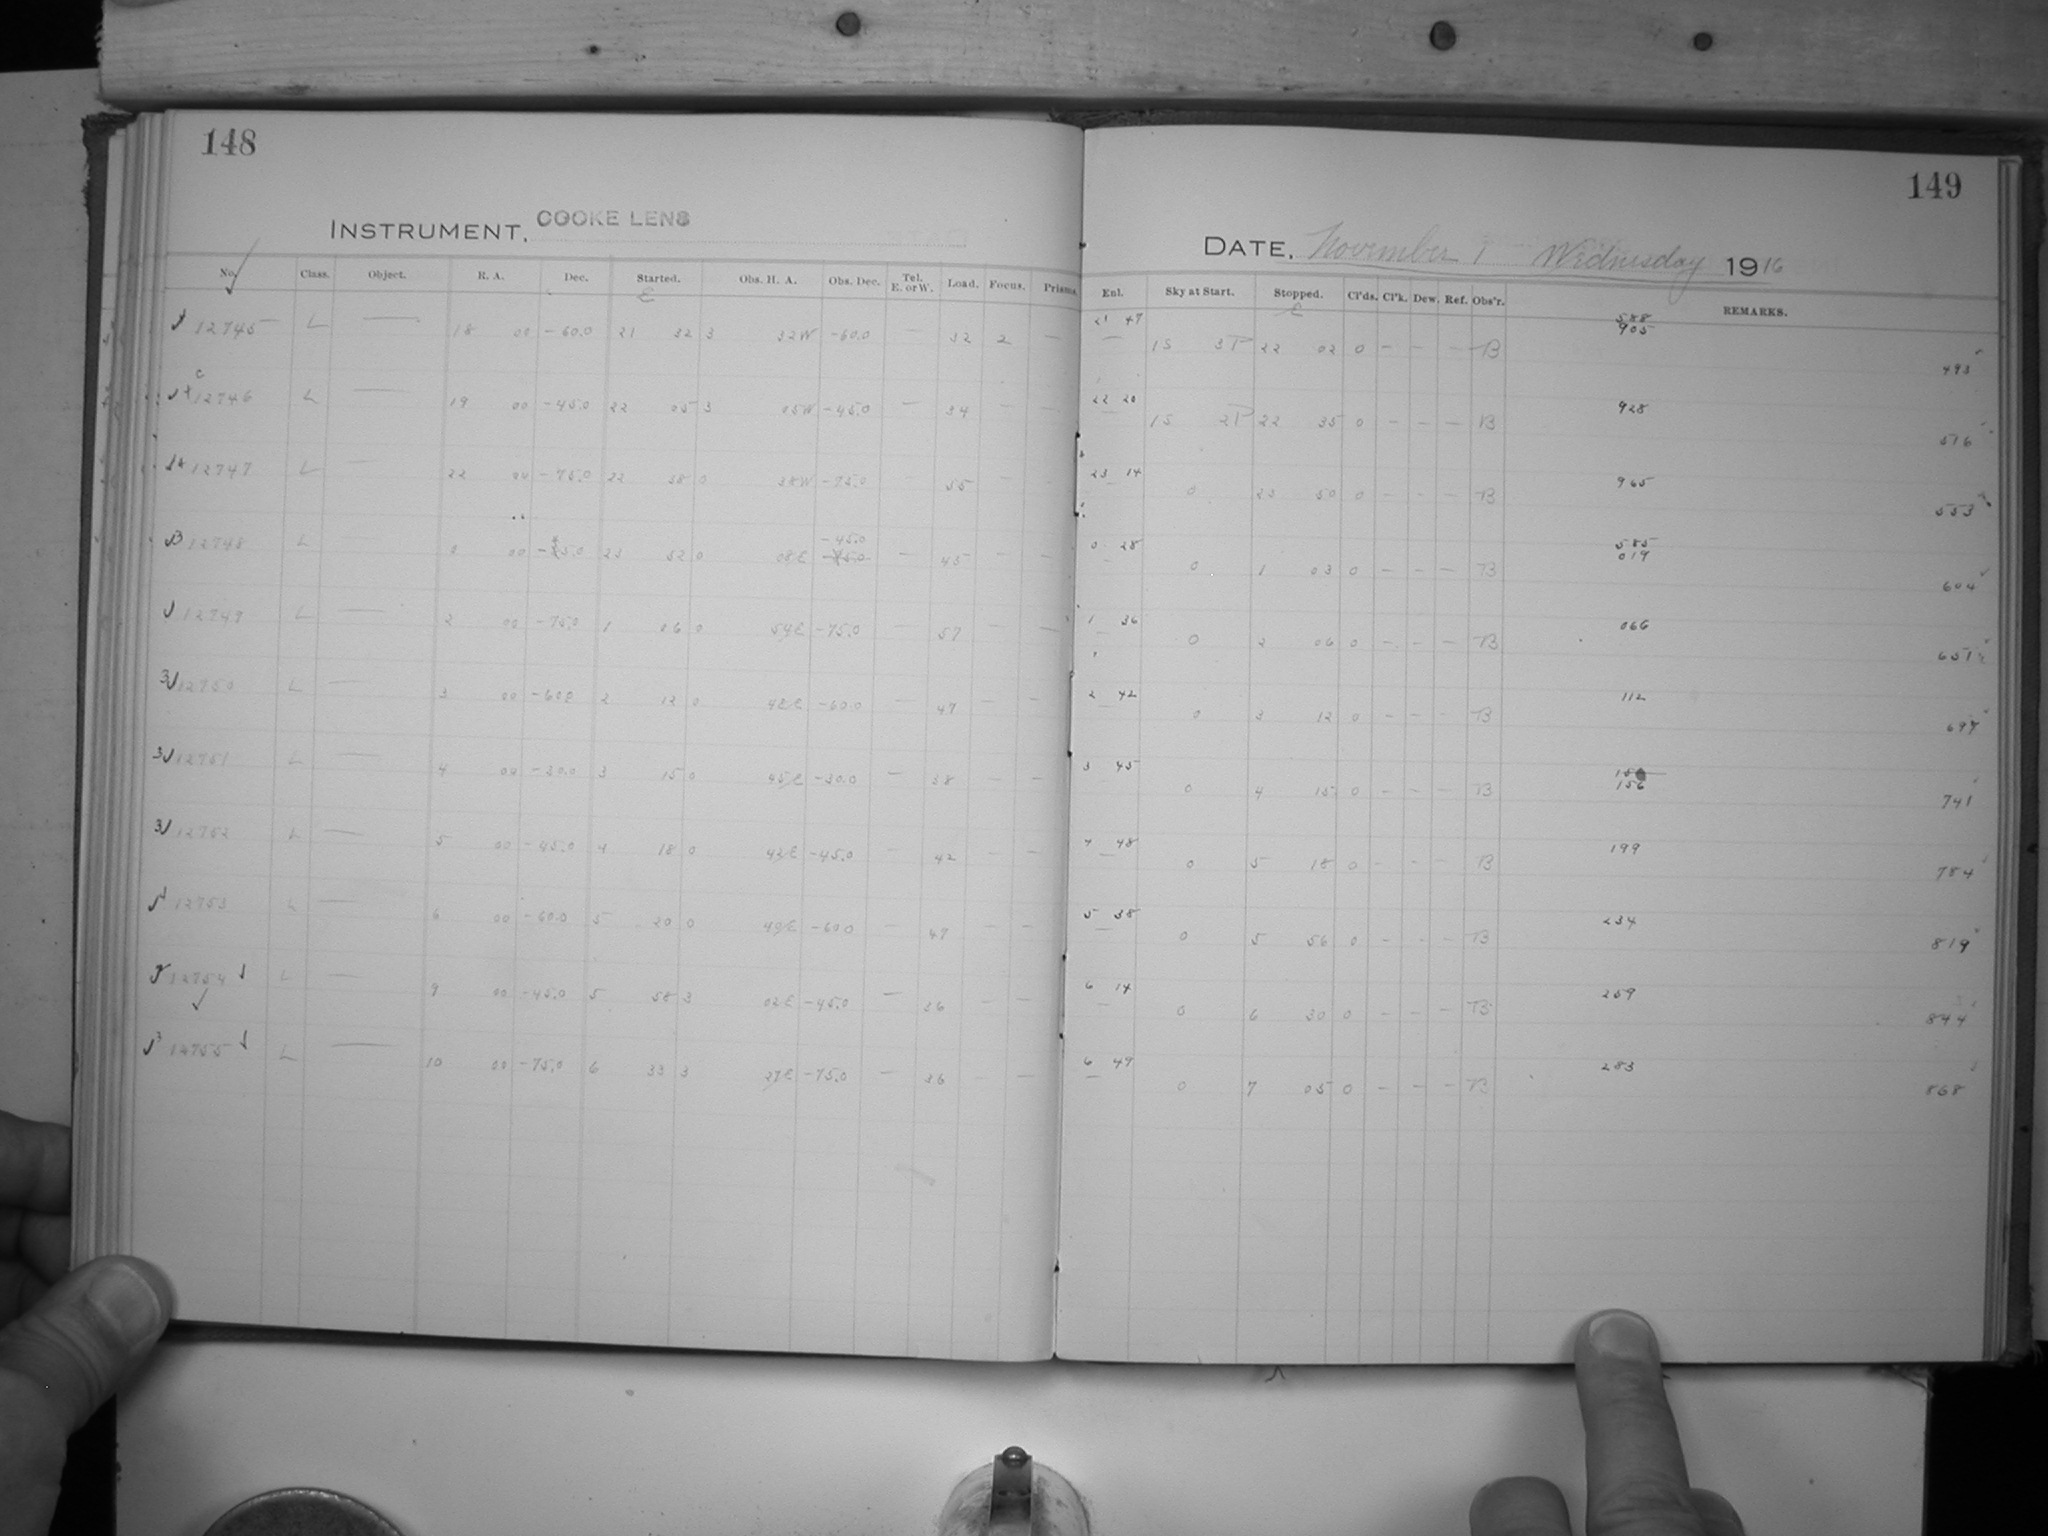 148
INSTRUMENT, COOKE LENS
No. Class. Object. R. A. Dec. Started. Obs. H. A. Obs. Dec. Tel. E. or W. Load. Focus. Prisms.
12745 L — 18 00 -60.0 21 32 3 32W -60.0 — 32 2 —
12746 L — 19 00 -45.0 22 05 3 05W -45.0 — 34 — —
12747 L — 22 00 -75.0 22 38 0 38W -75.0 — 55 — —
-45.0
12748 L — 0 00 23 52 0 08E — 45 — —
12749 L — 2 00 -75.0 1 06 0 54E -75.0 — 57 — —
12750 L — 3 00 2 12 0 48E -60.0 — 47 — —
12751 L — 4 00 -30.0 3 15 0 45E -30.0 — 38 — —
12752 L — 5 00 -45.0 4 18 0 42E -45.0 — 42 — —
12753 L — 6 00 -60.0 5 20 0 40E -60.0 — 47 — —
12754 L — 9 00 -45.0 5 58 3 02E -45.0 — 36 — —
12755 L — 10 00 -75.0 6 33 3 27E -75.0 — 36 — —
149
DATE, November 1 Wednesday 1916
Enl. Sky at Start. Stopped. Cl'ds. Cl'k. Dew. Ref. Obs'r. REMARKS.
21 47 588
905
1S 3P 22 02 0 — — — B 493
22 20 928
1S 2P 22 35 0 — — — B 516
23 14 965
0 23 50 0 — — — B 553
0 28 585
019
0 1 03 0 — — — B 604
1 36 066
0 2 06 0 — — — B 651
2 42 112
0 3 12 0 — — — B 697
3 45
156
0 4 15 0 — — — B 741
4 48 199
0 5 18 0 — — — B 784
5 38 234
0 5 56 0 — — — B 819
6 14 259
0 6 30 0 — — — B 844
6 49 283
0 7 05 0 — — — B 868